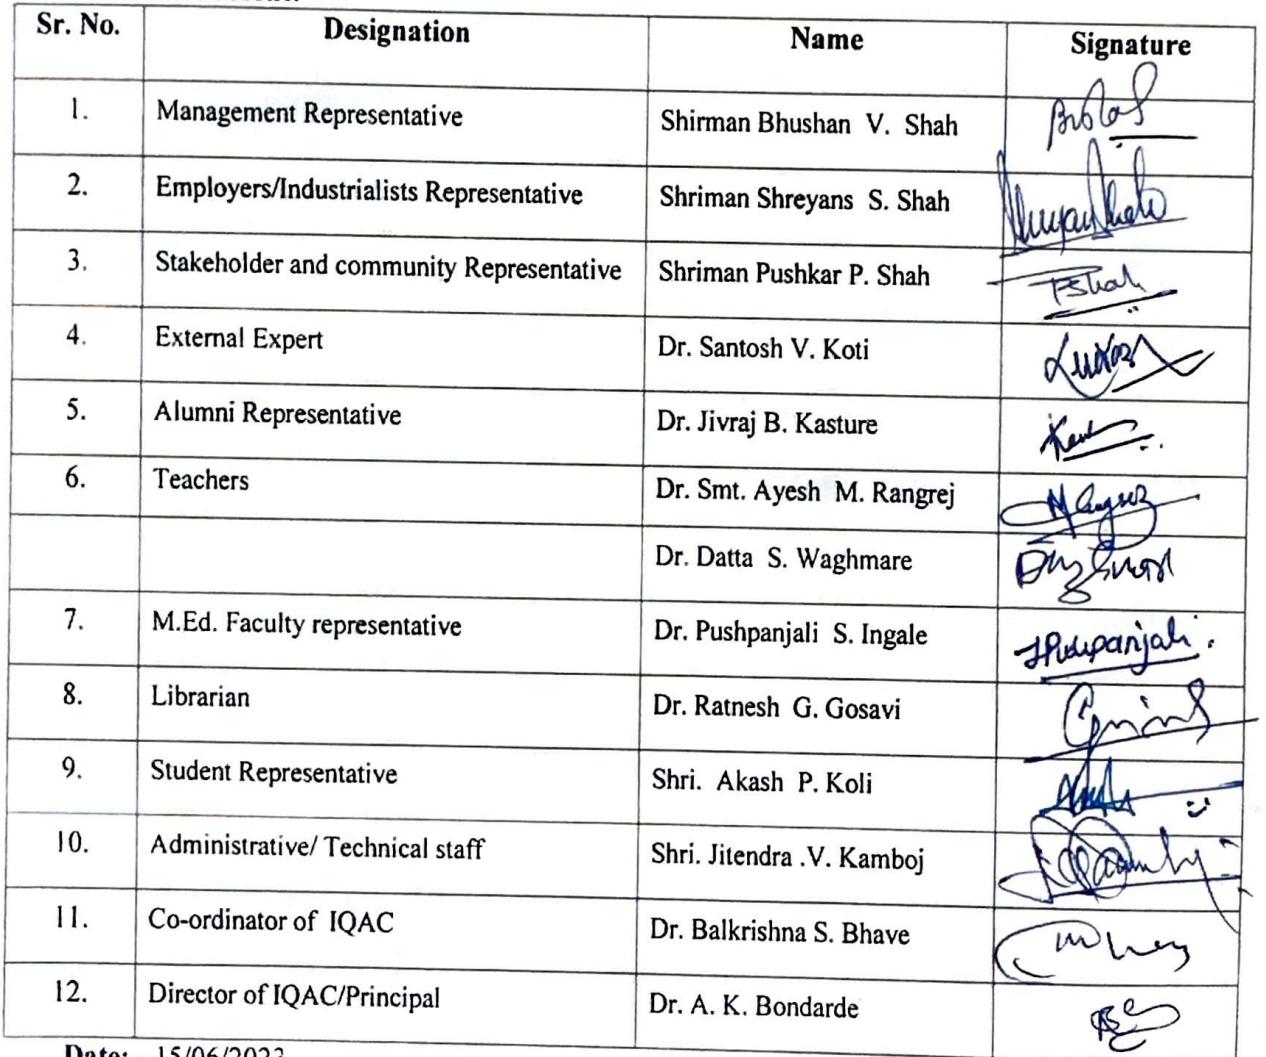 Sr. No. Designation Name Signature
1. Management Representative Shirman Bhushan V. Shah
2. Employers/Industrialists Representative Shriman Shreyans S. Shah
3. Stakeholder and community Representative Shriman Pushkar P. Shah PShah
4. External Expert Dr. Santosh V. Koti
5. Alumni Representative Dr. Jivraj B. Kasture
6. Teachers Dr. Smt. Ayesh M. Rangrej
Dr. Datta S. Waghmare
7. M.Ed. Faculty representative Dr. Pushpanjali S. Ingale
8. Librarian Dr. Ratnesh G. Gosavi
9. Student Representative Shri. Akash P. Koli
10. Administrative/ Technical staff Shri. Jitendra .V. Kamboj
11. Co-ordinator of IQAC Dr. Balkrishna S. Bhave
12. Director of IQAC/Principal Dr. A. K. Bondarde
Date: 15/06/2023